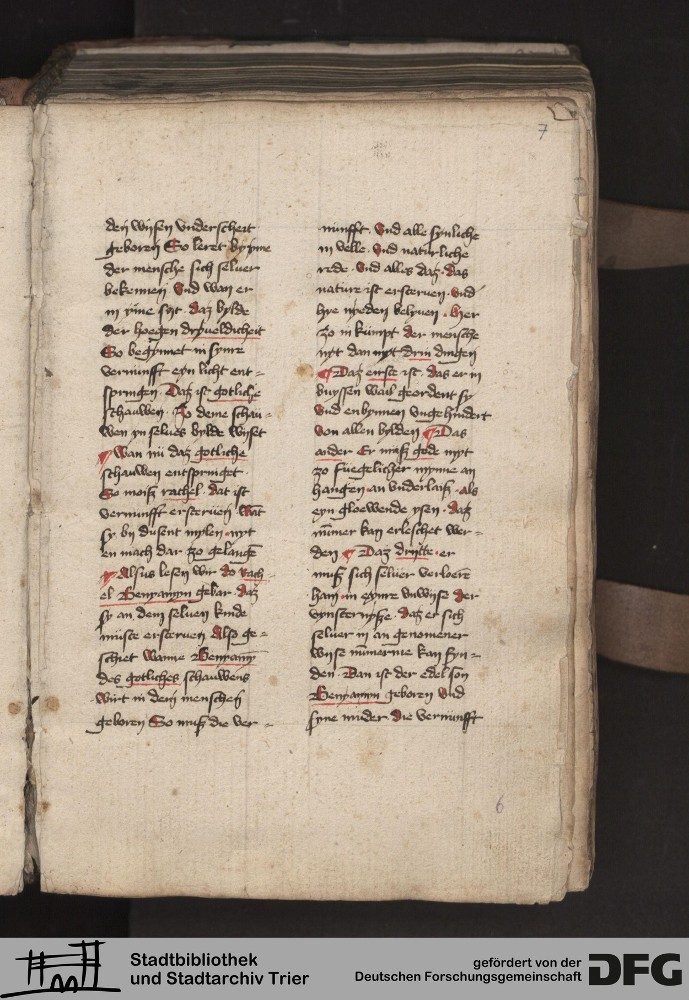 7
den wijsen vnderscheit
geboren So leret byyme
der mensche sich seluer
bekennen Vnd wan er
in yme siht. daz bylde
der hoegen dryueldicheit
So begynnet in synre
vernunfft eyn licht ent-
springen. Daz ist gotliche
schauwen. Zo deme schau-
wen yn selues bylde wijset
¶ Wan nu daz gotliche
schauwen entspringet.
So moiß rachel. dat ist
vernunfft ersteruen Wat
sy by dusent mylen nyt
en mach dar zo gelange
¶ Alsus lesen wir do rach-
el Benyamyn gebar. daz
sy an dem seluen kinde
muste ersteruen Also ge-
schiet wanne Benyamyn
des gotliches schauwens
wirt in dem menschen
geboren So muß die ver-
nunfft. Vnd alle synliche
in velle. Vnd naturliche
rede. Vnd alles daz. das
nature ist ersteruen. Vnd
hye nyeden belyuen. Hier
zo in kumpt der mensche
nyt dan myt drin dingen
¶ Daz eirste ist. das er in
buyssen wail geordent sy
Vnd enbynnen vngehindert
von allen bylden ¶ Das
ander Er muß gode myt
zo fuegelicher mynne an
hangen an vnderlaiß. als
eyn gloewende ysen. daz
nummer kan erleschet wer-
den ¶ Daz dritte. er
muß sich seluer verloere
hain in eynre vnwise der
vynsternyße. daz er sich
seluer in an genomener
wise nummerme kan syn-
den. Dan ist der edel son
Benyamyn geboren Vnd
syne muder. die vernunfft
6
Stadtbibliothek
und Stadtarchiv Trier
gefördert von der
Deutschen Forschungsgemeinschaft
DFG